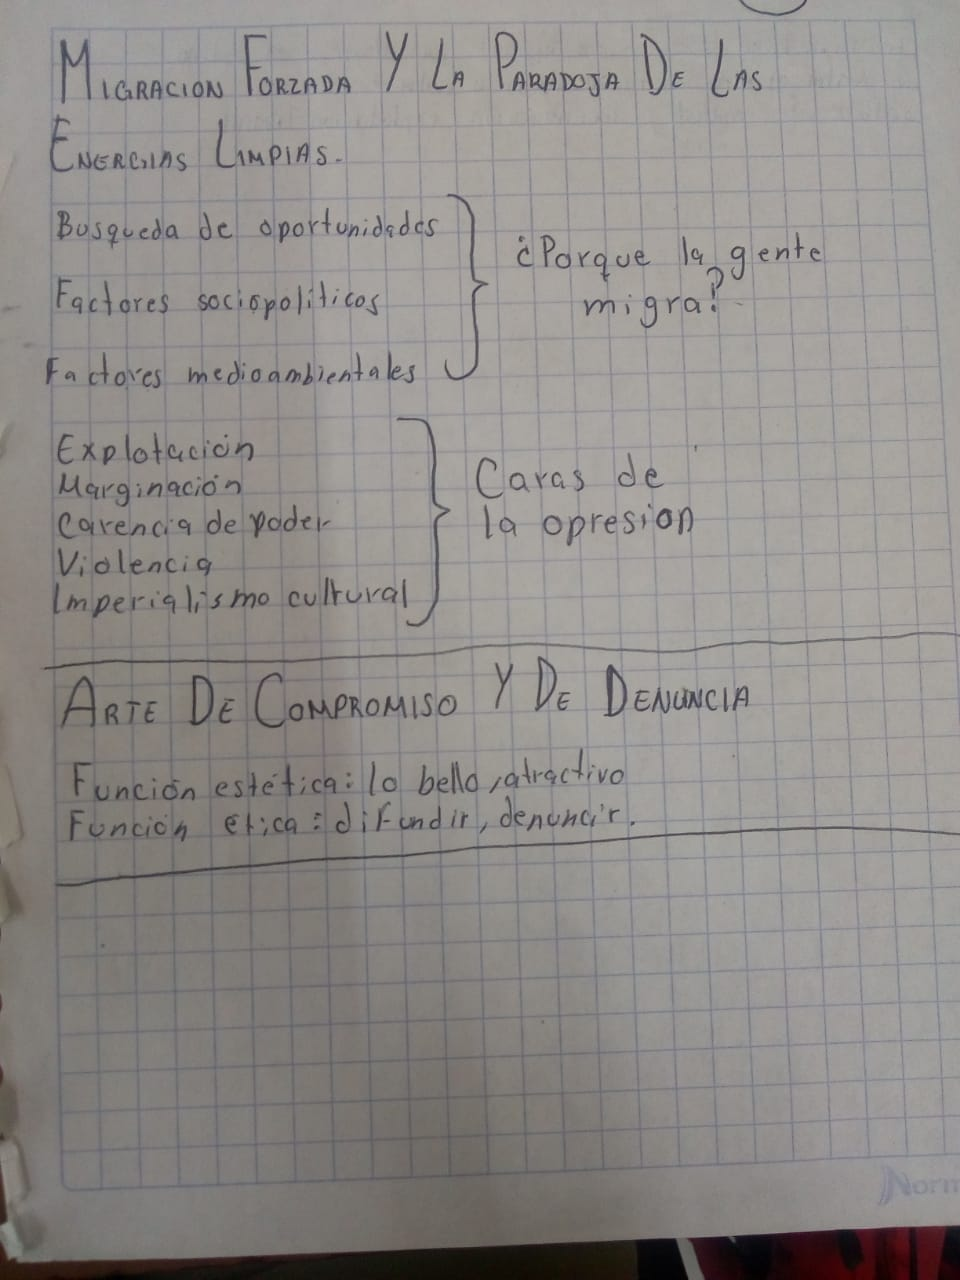 MIGRACION FORZADA Y LA PARADOJA DE LAS
ENERGIAS LIMPIAS.
Busqueda de oportunidades
Factores sociopoliticos
Factores medioambientales
¿Porque la gente
migra?
Explotación
Marginación
Carencia de poder
Violencia
Imperialismo cultural
Caras de
la opresion
ARTE DE COMPROMISO Y DE DENUNCIA
Función estética: lo bello, atractivo
Función etica: difundir, denuncir.
Norm